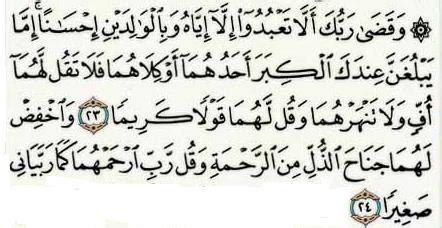 ۞ وَقَضَىٰ رَبُّكَ أَلَّا تَعْبُدُوٓا۟ إِلَّآ إِيَّاهُ وَبِٱلْوَٰلِدَيْنِ إِحْسَـٰنًا ۚ إِمَّا
يَبْلُغَنَّ عِندَكَ ٱلْكِبَرَ أَحَدُهُمَآ أَوْ كِلَاهُمَا فَلَا تَقُل لَّهُمَآ
أُفٍّ وَلَا تَنْهَرْهُمَا وَقُل لَّهُمَا قَوْلًا كَرِيمًا ٢٣ وَٱخْفِضْ
لَهُمَا جَنَاحَ ٱلذُّلِّ مِنَ ٱلرَّحْمَةِ وَقُل رَّبِّ ٱرْحَمْهُمَا كَمَا رَبَّيَانِى
صَغِيرًا ٢٤